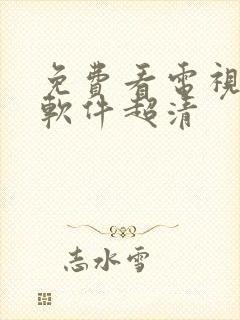 免費看電視
軟件超清
志水雪